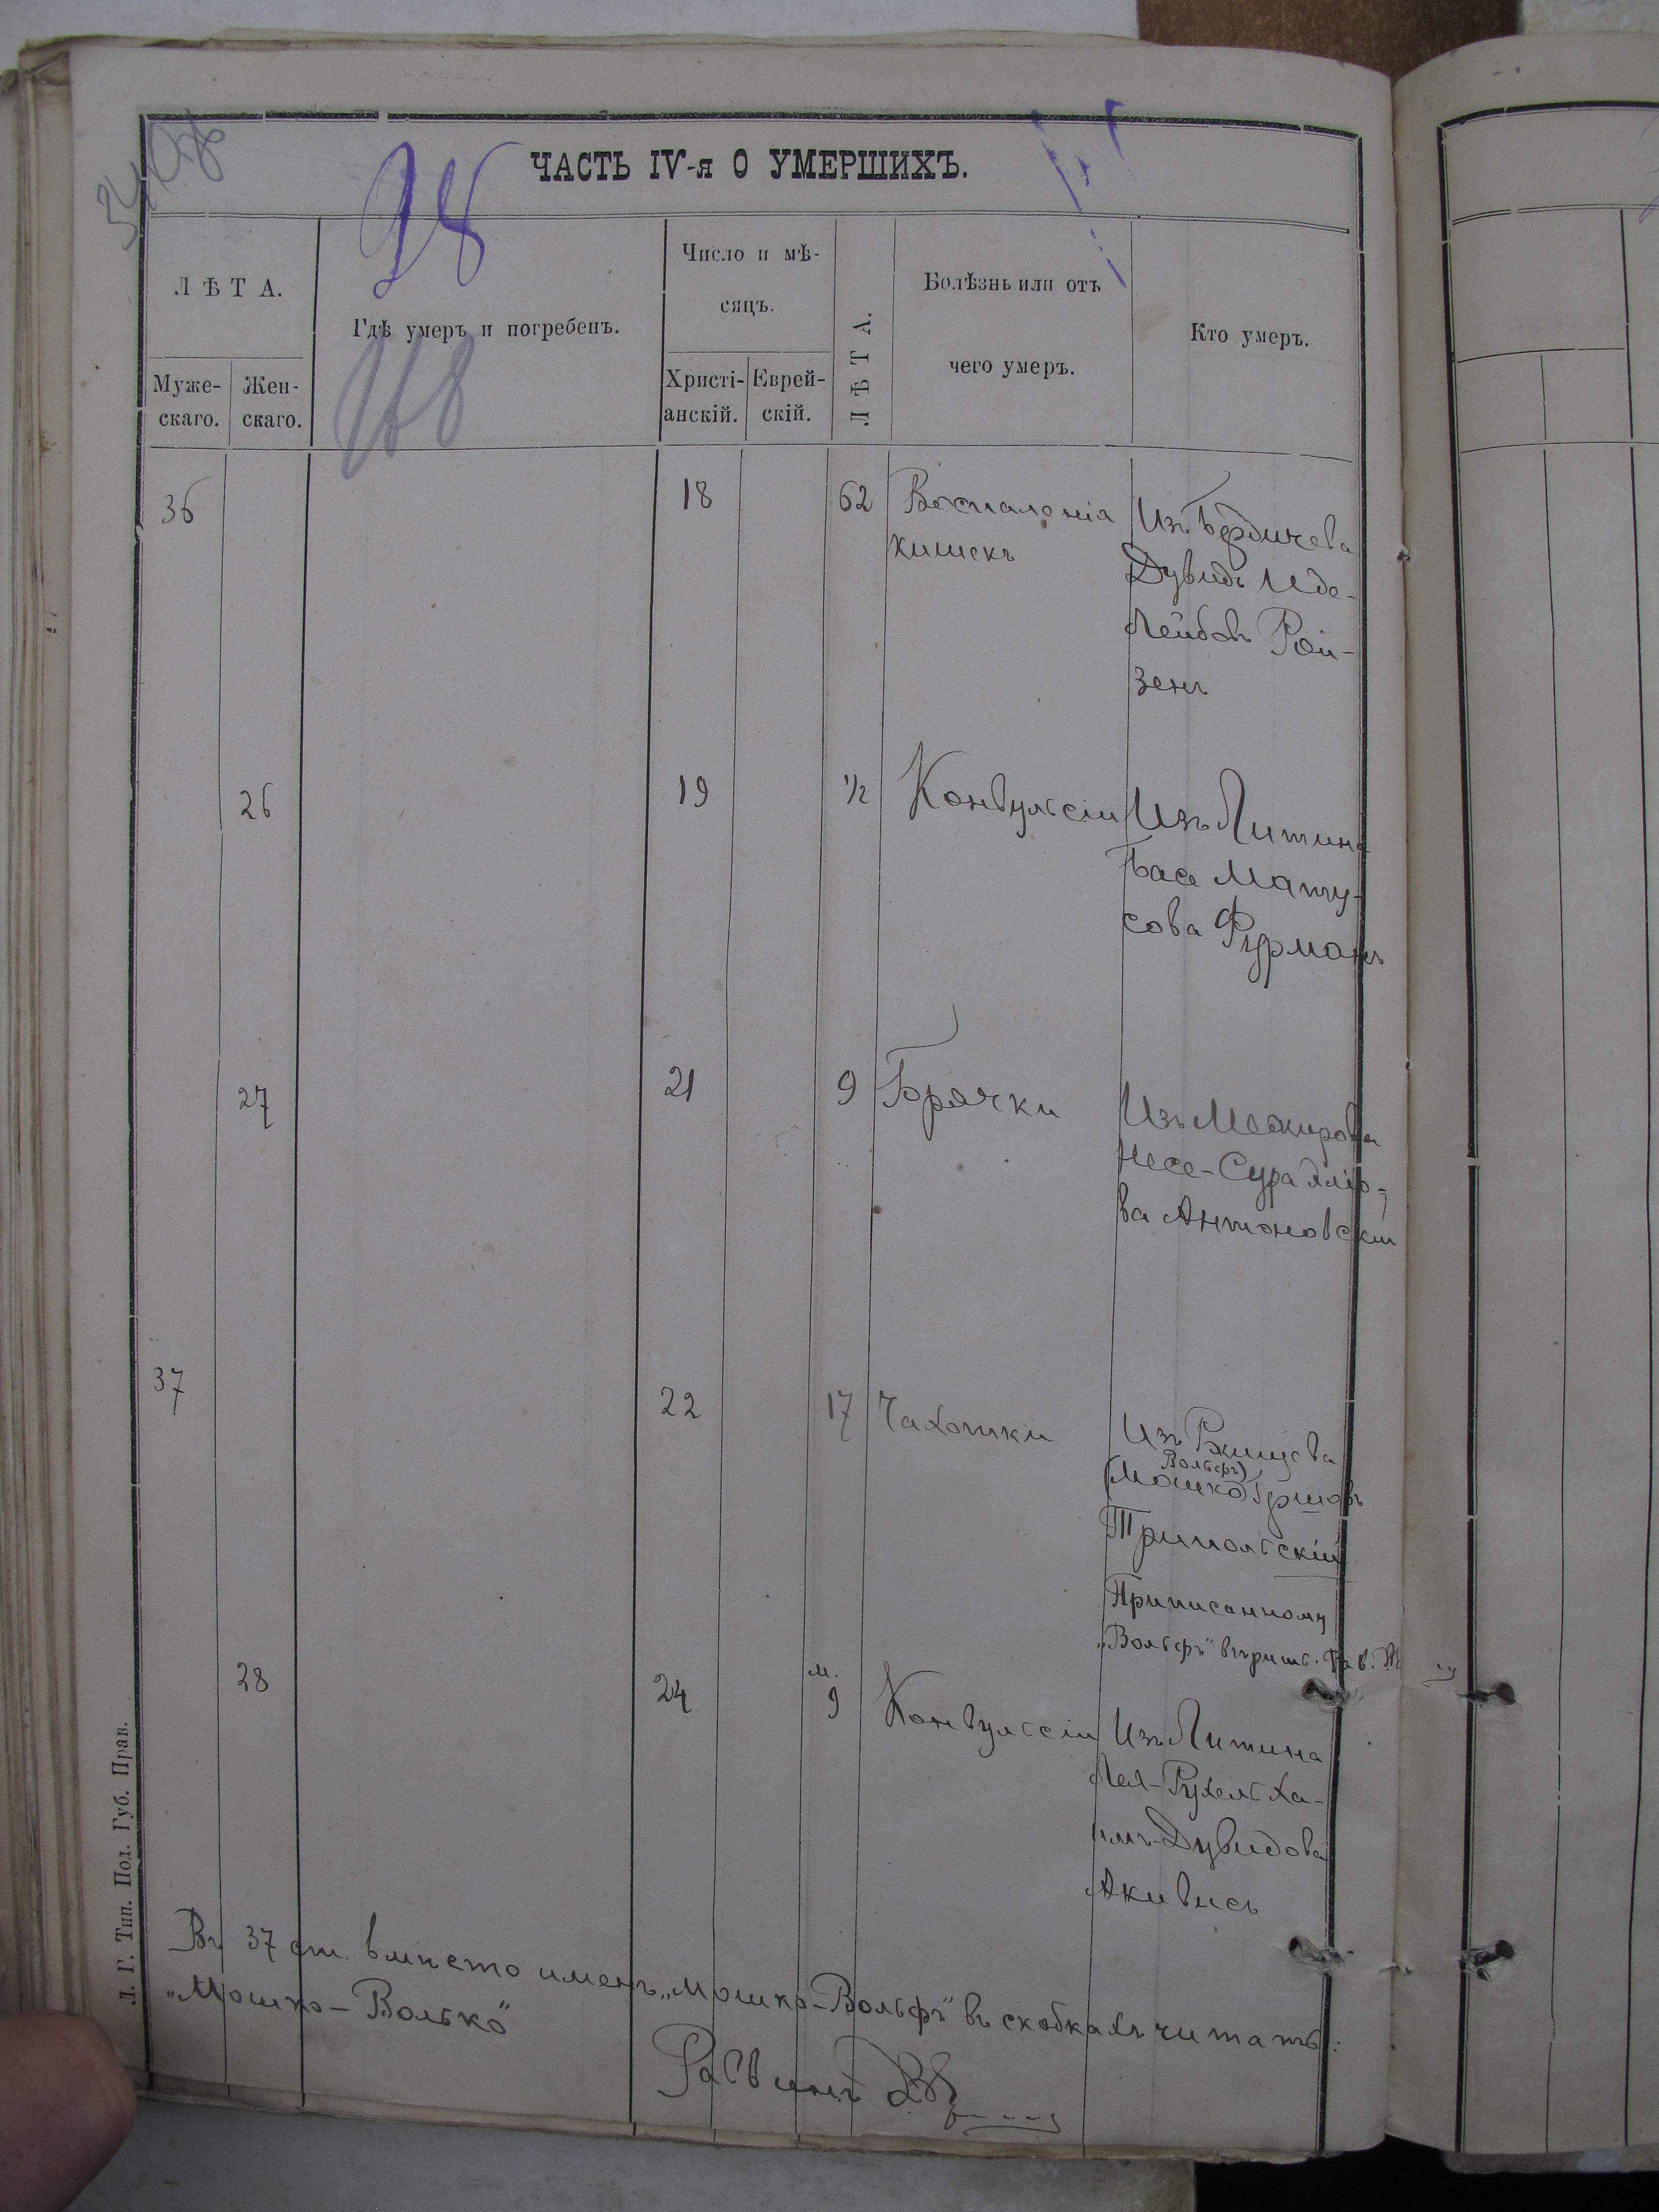 ЧАСТЬ IV-я О УМЕРШИХЪ.
28
168
ЛѢТА.
Муже-
скаго.
Жен-
скаго.
Гдѣ умеръ и погребенъ.
Число и мѣ-
сяцъ.
Христі-
анскій.
Еврей-
скій.
ЛѢТА.
Болѣзнь или отъ
чего умеръ.
Кто умеръ.
36 18 62 Воспаленія Изъ Бердичева
кишекъ Дувидъ Иде-
Лейбовъ Рой-
зенъ
26 19 1/2 Конвульсіи Изъ Литина
Бася Мату-
сова Фурманъ
27 21 9 Горячки Изъ Межирова
Несе-Сура
ва Антоновскій
37 22 17 Чахотки Изъ Ржищева
Вольфъ)
(Мошко) Гершовъ
Трипольскій
Приписанному
„Вольфъ"
28 24 м. 9 Конвульсіи Изъ Литина
Лея-Рухель Ха-
имъ-Дувидова
Акивисъ
Въ 37 ст. вмѣсто именъ „Мошко-Вольфъ" въ скобкахъ читать:
„Мошко-Волько"
Раввинъ
Л. Г. Тип. Под. Губ. Прав.